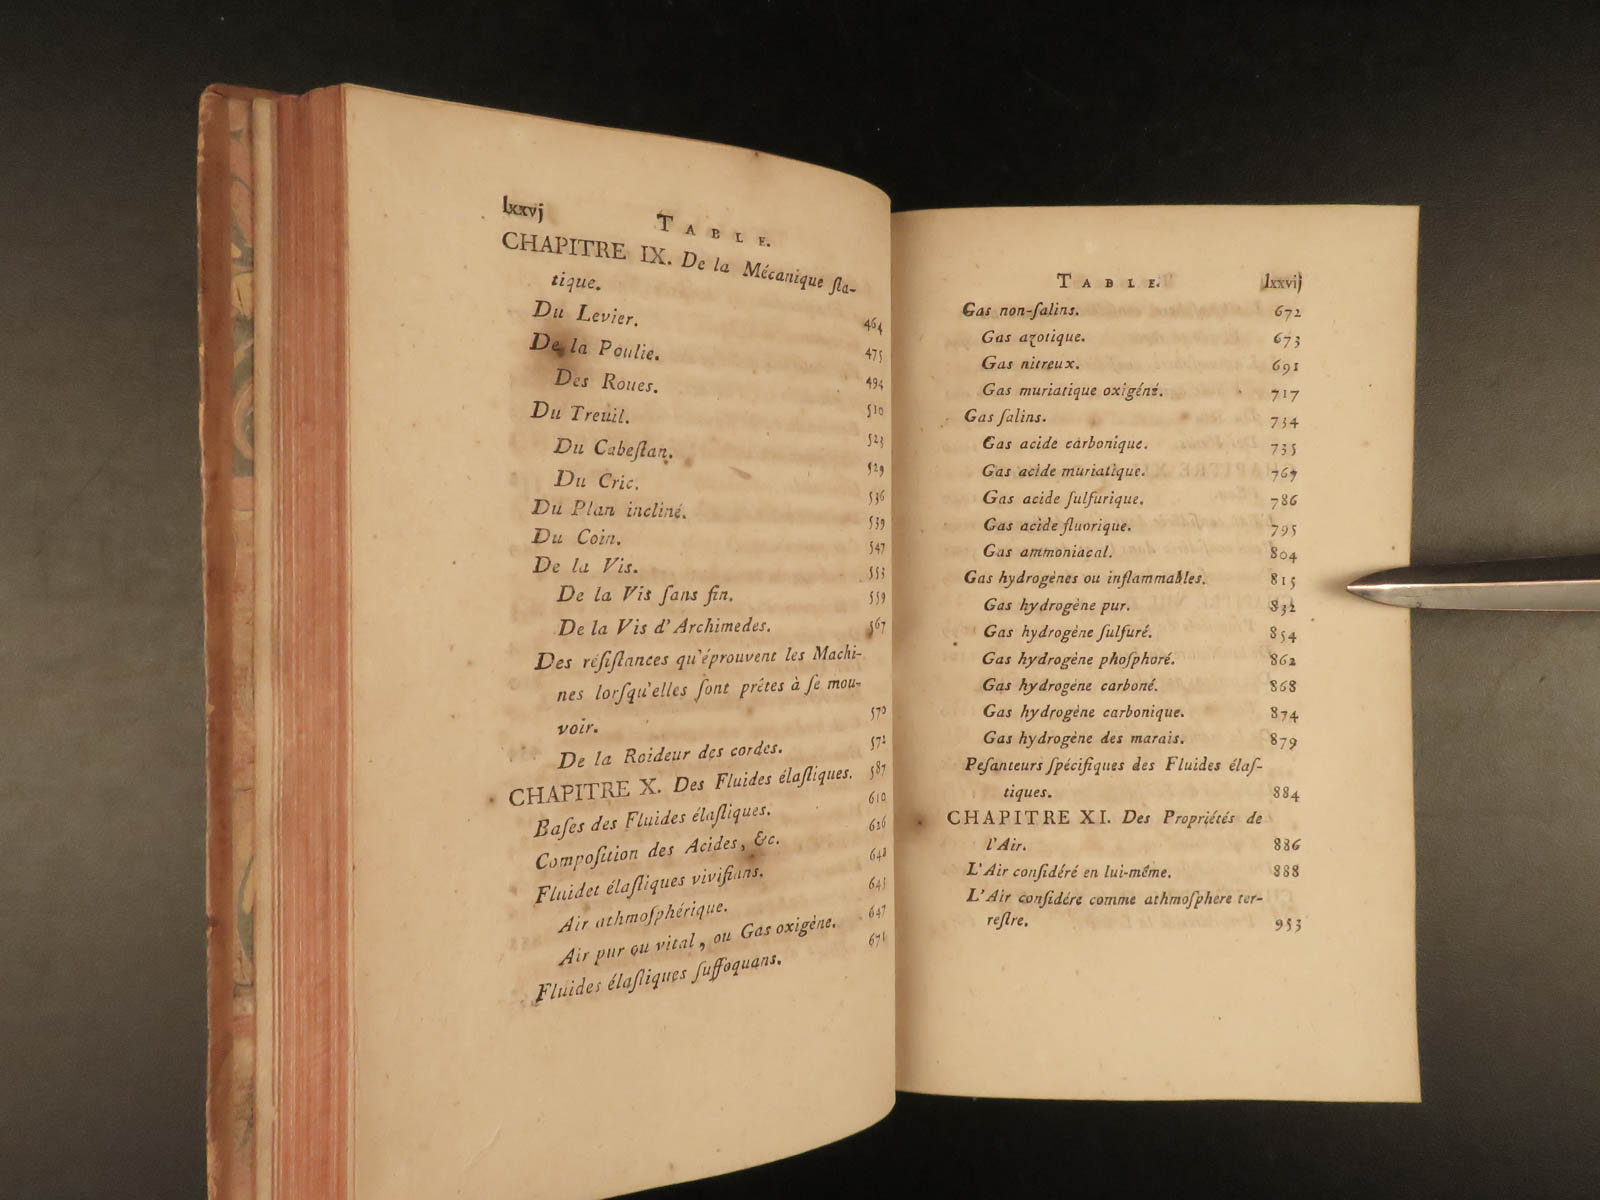 lxxvj
TABLE.
CHAPITRE IX. De la Mécanique ſta-
tique. 464
Du Levier. 475
De la Poulie. 494
Des Roues. 510
Du Treuil. 523
Du Cabeſtan. 529
Du Cric. 536
Du Plan incliné. 539
Du Coin. 547
De la Vis. 553
De la Vis ſans fin. 559
De la Vis d'Archimedes. 567
Des réſiſtances qu'éprouvent les Machi-
nes lorſqu'elles ſont prêtes à ſe mou-
voir. 570
De la Roideur des cordes. 572
CHAPITRE X. Des Fluides élaſtiques. 587
Baſes des Fluides élaſtiques. 610
Compoſition des Acides, &c. 626
Fluides élaſtiques vivifians. 642
Air athmoſphérique. 643
Air pur ou vital, ou Gas oxigène. 647
Fluides élaſtiques ſuffoquans. 671
TABLE. lxxvij
Gas non-ſalins. 672
Gas azotique. 673
Gas nitreux. 691
Gas muriatique oxigéné. 717
Gas ſalins. 734
Gas acide carbonique. 735
Gas acide muriatique. 767
Gas acide ſulfurique. 786
Gas acide fluorique. 795
Gas ammoniacal. 804
Gas hydrogènes ou inflammables. 815
Gas hydrogène pur. 832
Gas hydrogène ſulfuré. 854
Gas hydrogène phoſphoré. 862
Gas hydrogène carboné. 868
Gas hydrogène carbonique. 874
Gas hydrogène des marais. 879
Peſanteurs ſpécifiques des Fluides élaſ-
tiques. 884
CHAPITRE XI. Des Propriétés de
l'Air. 886
L'Air conſidéré en lui-même. 888
L'Air conſidére comme athmoſphere ter-
reſtre. 953